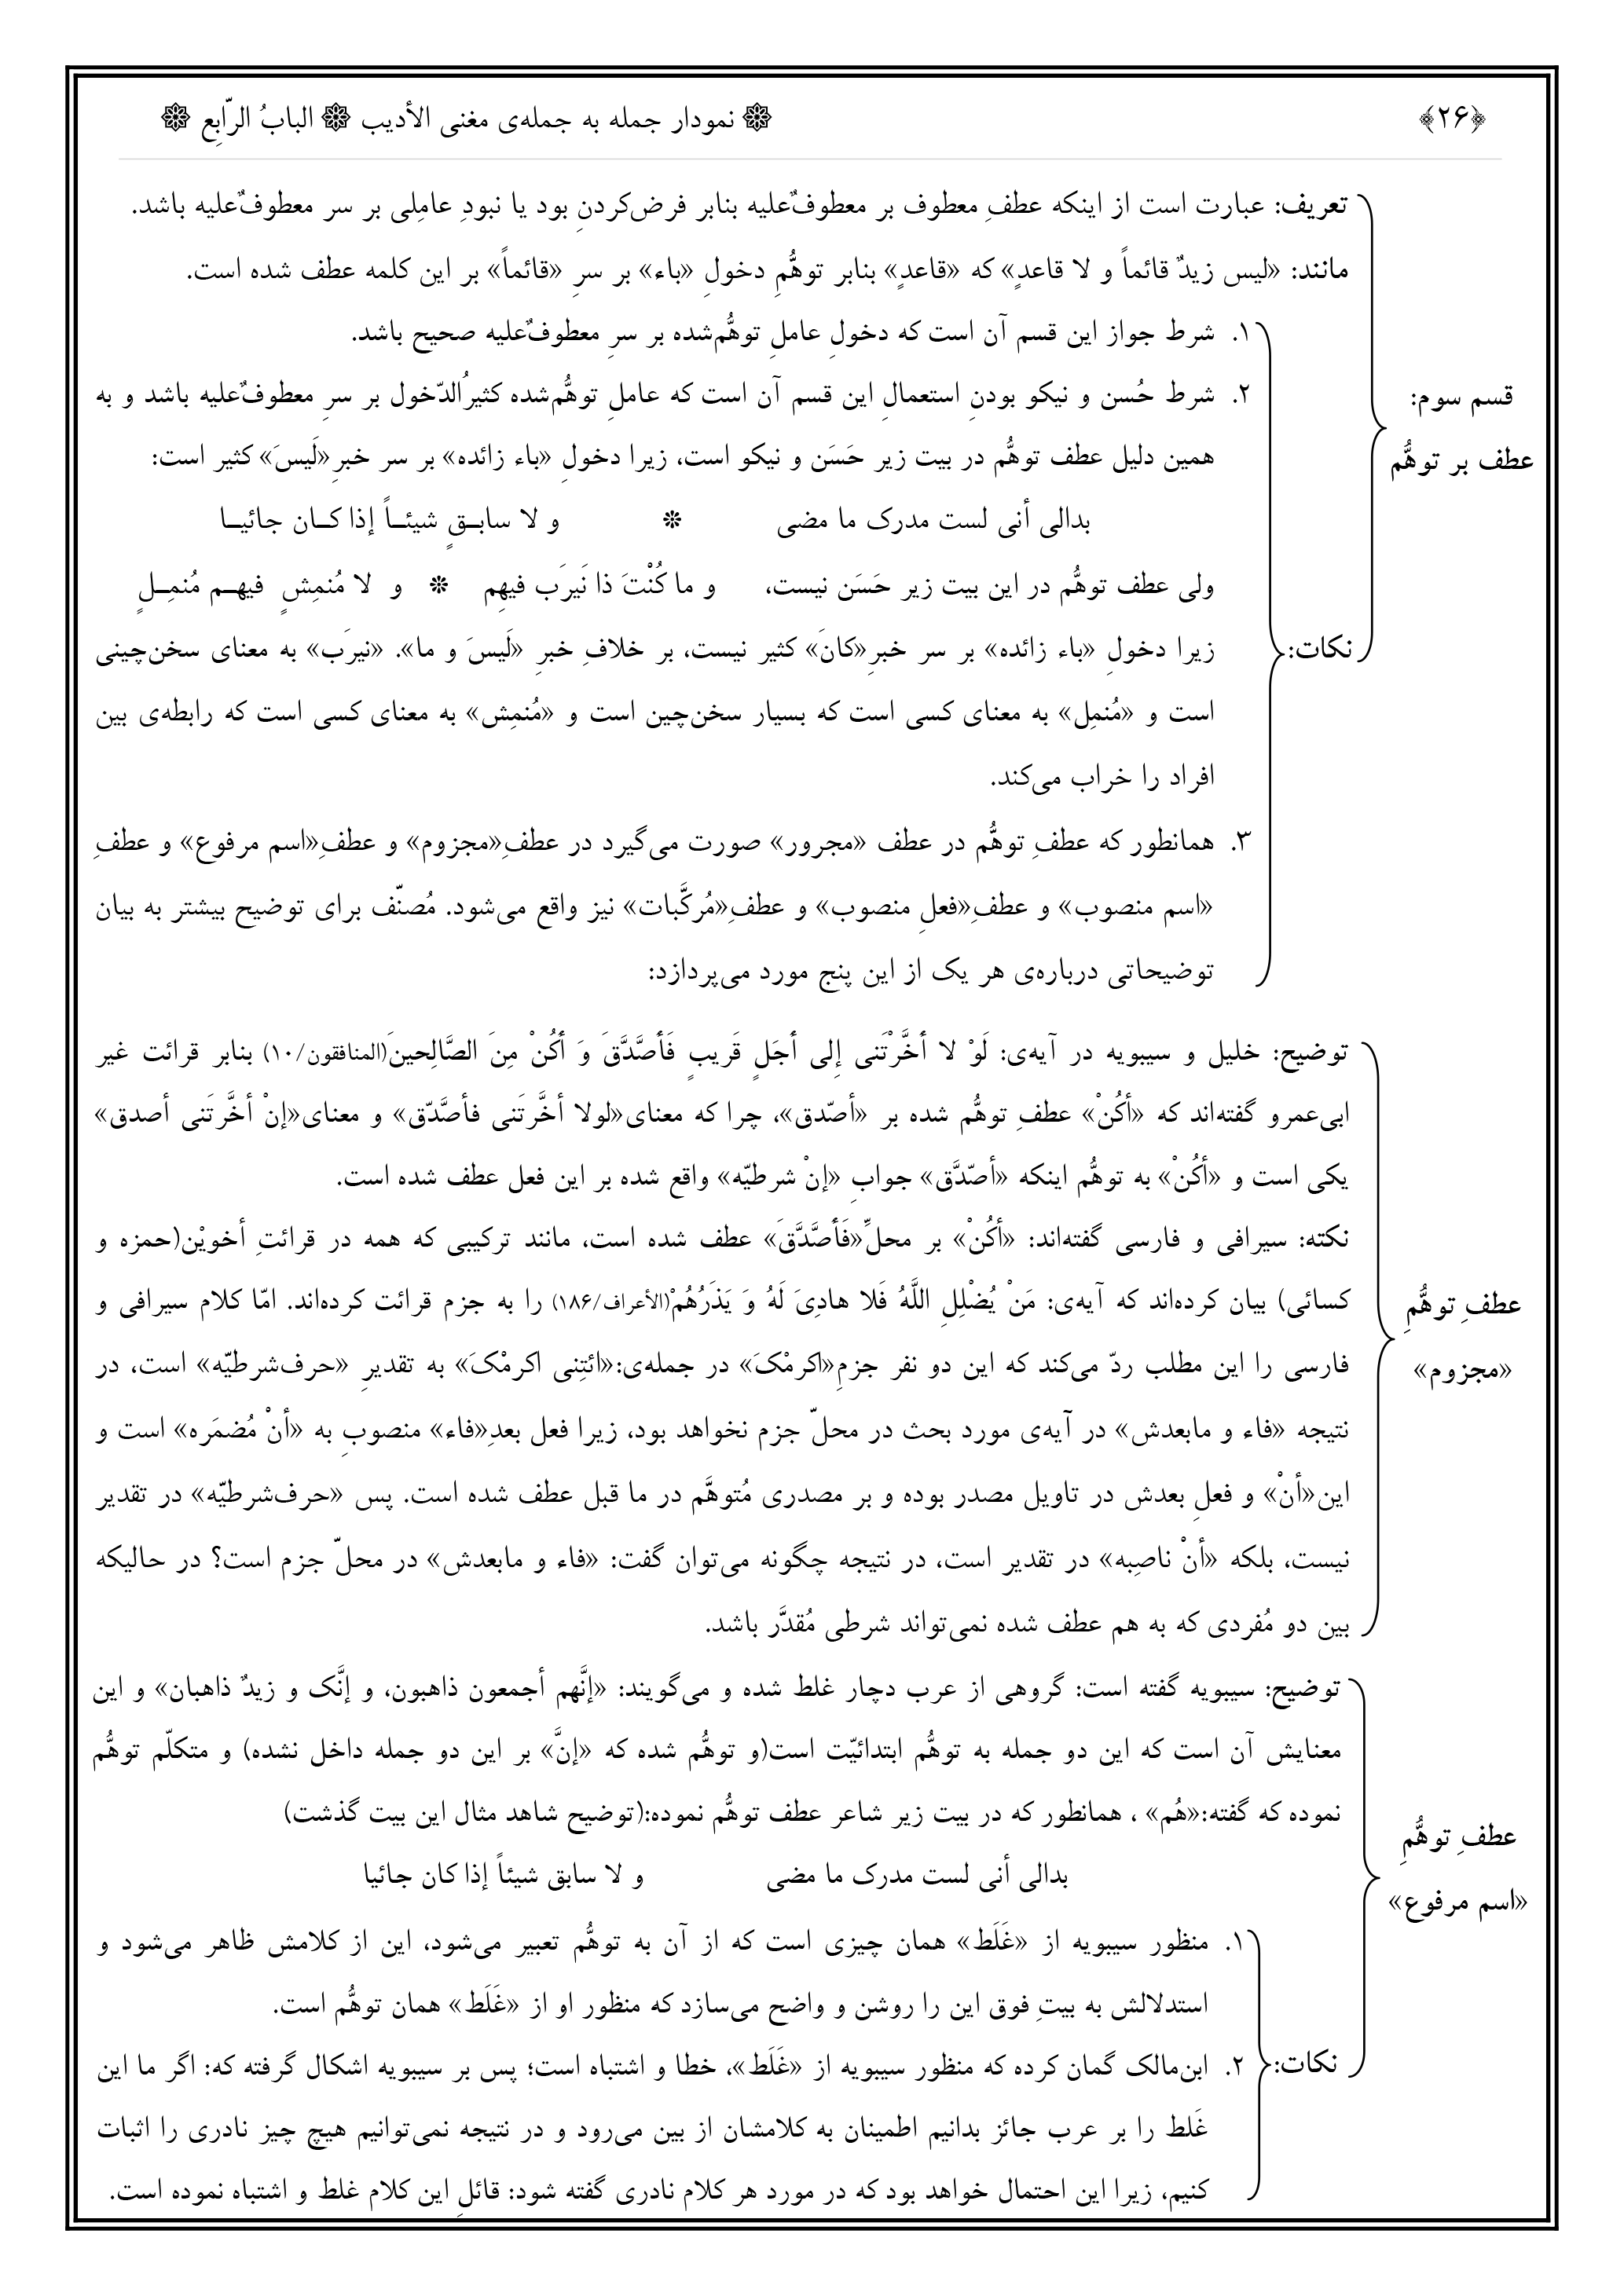 ﴿۲۶﴾
نمودار جمله به جمله‌ی مغنی الأدیب ❁ البابُ الرّابِع
تعریف: عبارت است از اینکه عطفِ معطوف بر معطوفٌ‌علیه بنابر فرض‌کردنِ بود یا نبودِ عامِلی بر سر معطوفٌ‌علیه باشد.
مانند: «لیس زیدٌ قائماً و لا قاعدٍ» که «قاعدٍ» بنابر توهُّمِ دخولِ «باء» بر سرِ «قائماً» بر این کلمه عطف شده است.
قسم سوم:
عطف بر توهُّم
نکات:
۱. شرط جواز این قسم آن است که دخولِ عاملِ توهُّم‌شده بر سرِ معطوفٌ‌علیه صحیح باشد.
۲. شرط حُسن و نیکو بودنِ استعمالِ این قسم آن است که عاملِ توهُّم‌شده کثیرُالدّخول بر سرِ معطوفٌ‌علیه باشد و به
همین دلیل عطف توهُّم در بیت زیر حَسَن و نیکو است، زیرا دخولِ «باء زائده» بر سر خبرِ«لَیسَ» کثیر است:
بدالی أنی لست مدرک ما مضی ❊ و لا سابـقٍ شیئـاً إذا کـان جائیـا
ولی عطف توهُّم در این بیت زیر حَسَن نیست، و ما کُنْتَ ذا نَیرَب فیهِم ❊ و لا مُنمِشٍ فیهـم مُنمِـلٍ
زیرا دخولِ «باء زائده» بر سر خبرِ«کانَ» کثیر نیست، بر خلافِ خبرِ «لَیسَ و ما». «نیرَب» به معنای سخن‌چینی
است و «مُنمِل» به معنای کسی است که بسیار سخن‌چین است و «مُنمِش» به معنای کسی است که رابطه‌ی بین
افراد را خراب می‌کند.
۳. همانطور که عطفِ توهُّم در عطف «مجرور» صورت می‌گیرد در عطفِ«مجزوم» و عطفِ«اسم مرفوع» و عطفِ
«اسم منصوب» و عطفِ«فعلِ منصوب» و عطفِ«مُرکَّبات» نیز واقع می‌شود. مُصنّف برای توضیح بیشتر به بیان
توضیحاتی درباره‌ی هر یک از این پنج مورد می‌پردازد:
توضیح: خلیل و سیبویه در آیه‌ی: لَوْ لا أَخَّرْتَنی إِلی أَجَلٍ قَریبٍ فَأَصَّدَّقَ وَ أَکُنْ مِنَ الصَّالِحینَ(المنافقون/۱۰) بنابر قرائت غیر
ابی‌عمرو گفته‌اند که «أکُنْ» عطفِ توهُّم شده بر «أصّدق»، چرا که معنای«لولا أخَّرتَنی فأصَّدّق» و معنای«إنْ أخَّرتَنی أصدق»
یکی است و «أکُنْ» به توهُّم اینکه «أصّدَّق» جوابِ «إنْ شرطیّه» واقع شده بر این فعل عطف شده است.
نکته: سیرافی و فارسی گفته‌اند: «أکُنْ» بر محلِّ«فَأصَّدَّقَ» عطف شده است، مانند ترکیبی که همه در قرائتِ أخویْن(حمزه و
کسائی) بیان کرده‌اند که آیه‌ی: مَنْ یُضْلِلِ اللَّهُ فَلا هادِیَ لَهُ وَ یَذَرُهُمْ(الأعراف/۱۸۶) را به جزم قرائت کرده‌اند. امّا کلام سیرافی و
فارسی را این مطلب ردّ می‌کند که این دو نفر جزمِ«اکرمْکَ» در جمله‌ی:«ائتِنی اکرمْکَ» به تقدیرِ «حرف‌شرطیّه» است، در
نتیجه «فاء و مابعدش» در آیه‌ی مورد بحث در محلّ جزم نخواهد بود، زیرا فعل بعدِ«فاء» منصوبِ به «أنْ مُضمَره» است و
این«أنْ» و فعلِ بعدش در تاویل مصدر بوده و بر مصدری مُتوهَّم در ما قبل عطف شده است. پس «حرف‌شرطیّه» در تقدیر
نیست، بلکه «أنْ ناصِبه» در تقدیر است، در نتیجه چگونه می‌توان گفت: «فاء و مابعدش» در محلّ جزم است؟ در حالیکه
بین دو مُفردی که به هم عطف شده نمی‌تواند شرطی مُقدَّر باشد.
عطفِ توهُّمِ
«مجزوم»
توضیح: سیبویه گفته است: گروهی از عرب دچار غلط شده و می‌گویند: «إنَّهم أجمعون ذاهبون، و إنَّک و زیدٌ ذاهبان» و این
معنایش آن است که این دو جمله به توهُّم ابتدائیّت است(و توهُّم شده که «إنَّ» بر این دو جمله داخل نشده) و متکلّم توهُّم
نموده که گفته:«هُم» ، همانطور که در بیت زیر شاعر عطف توهُّم نموده:(توضیح شاهد مثال این بیت گذشت)
بدالی أنی لست مدرک ما مضی و لا سابق شیئاً إذا کان جائیا
عطفِ توهُّمِ
«اسم مرفوع»
نکات:
۱. منظور سیبویه از «غَلَط» همان چیزی است که از آن به توهُّم تعبیر می‌شود، این از کلامش ظاهر می‌شود و
استدلالش به بیتِ فوق این را روشن و واضح می‌سازد که منظور او از «غَلَط» همان توهُّم است.
۲. ابن‌مالک گمان کرده که منظور سیبویه از «غَلَط»، خطا و اشتباه است؛ پس بر سیبویه اشکال گرفته که: اگر ما این
غَلط را بر عرب جائز بدانیم اطمینان به کلامشان از بین می‌رود و در نتیجه نمی‌توانیم هیچ چیز نادری را اثبات
کنیم، زیرا این احتمال خواهد بود که در مورد هر کلام نادری گفته شود: قائلِ این کلام غلط و اشتباه نموده است.